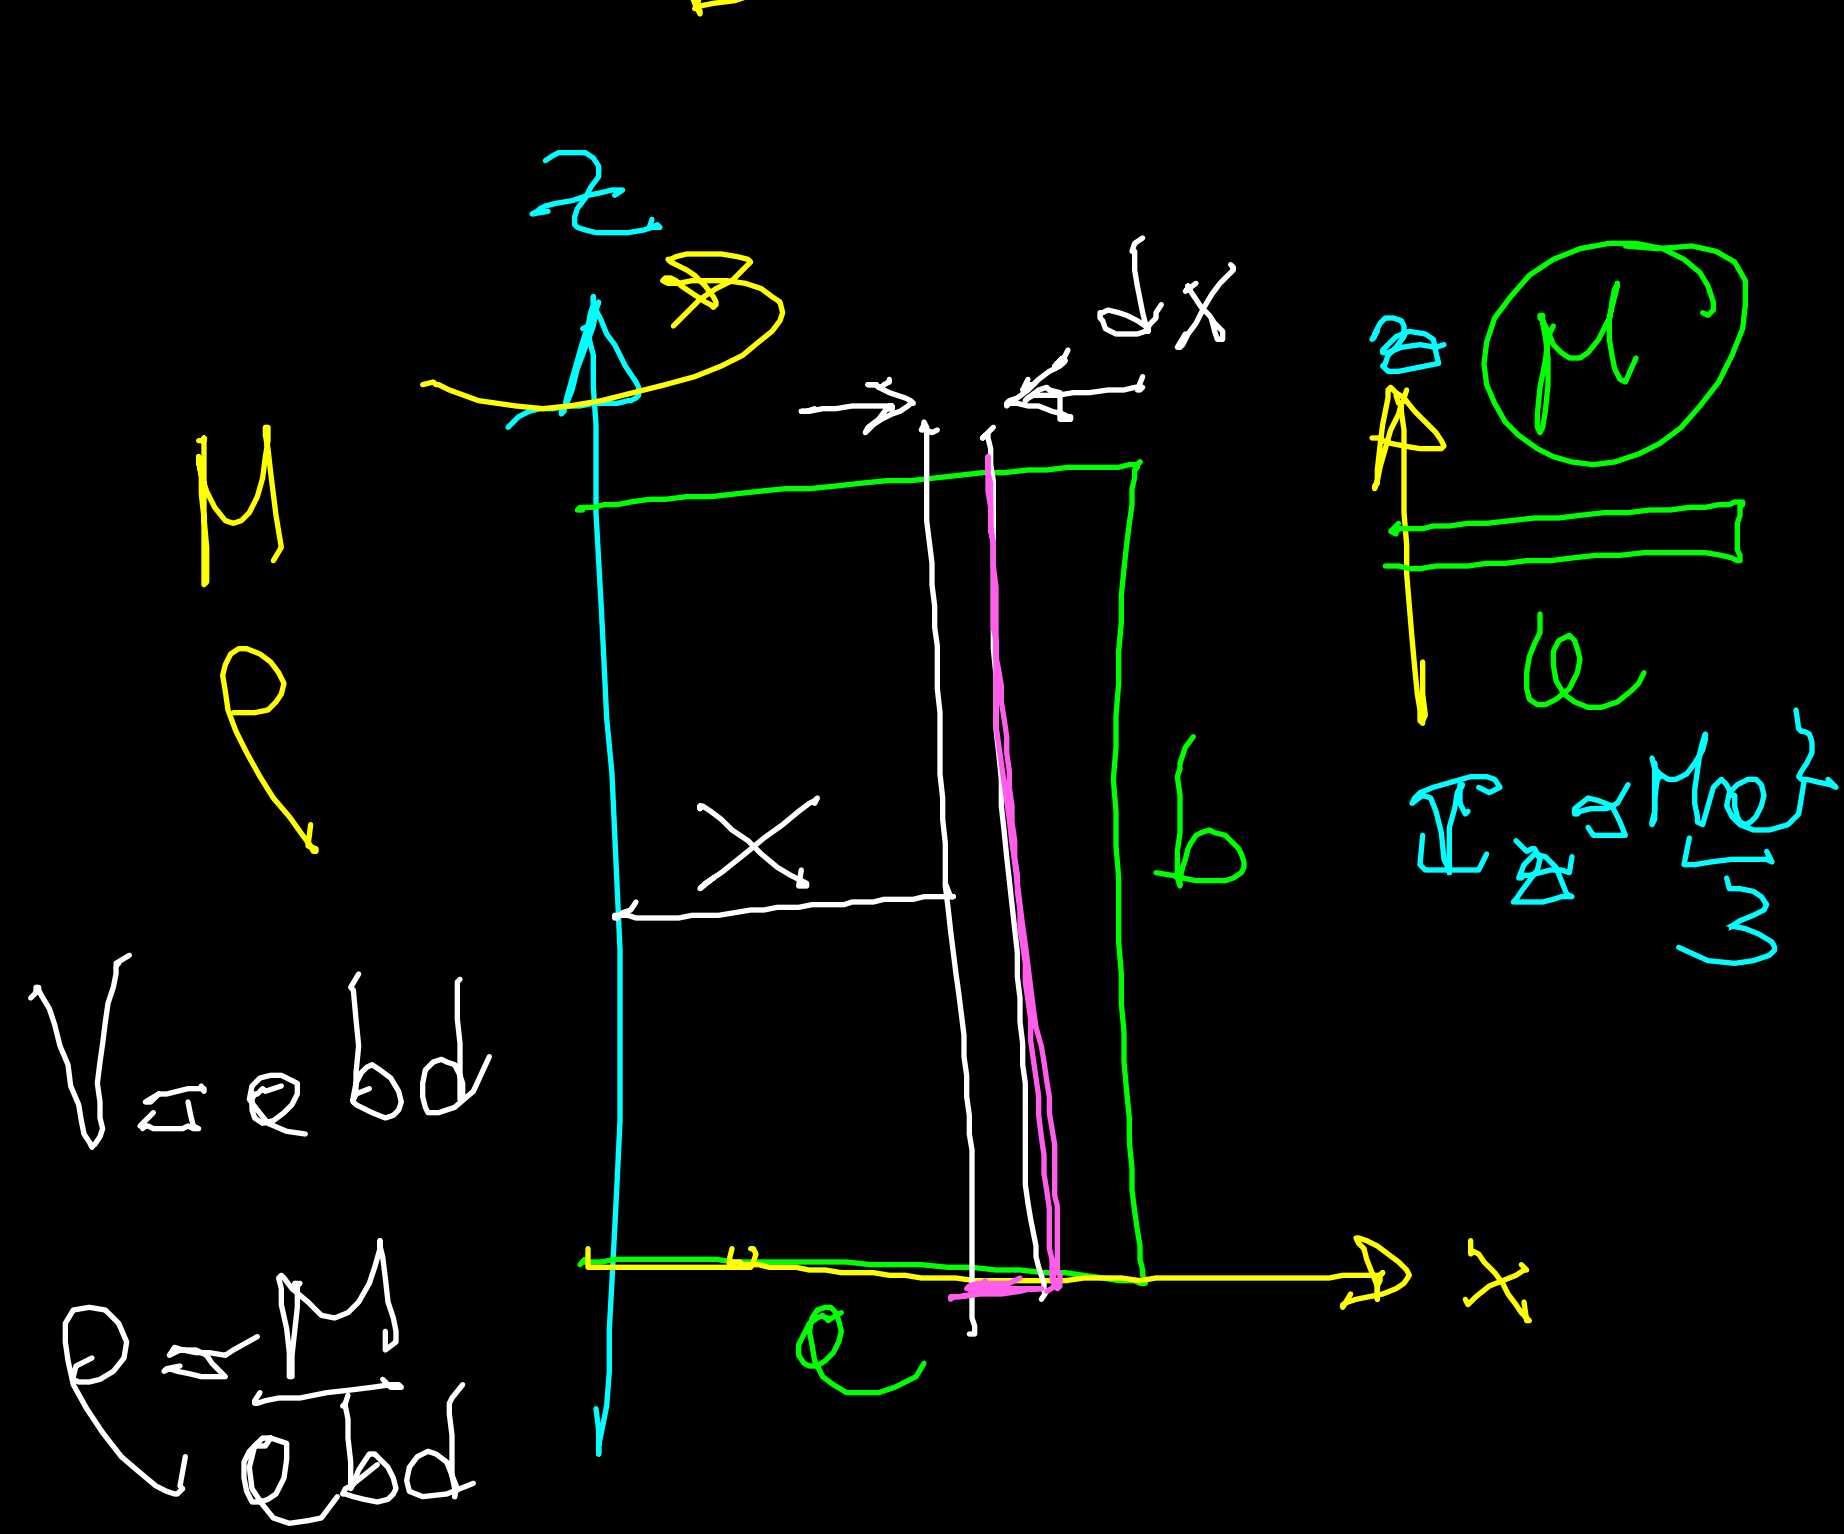 z
dx
z
M
M
ρ
x
b
a
I_z = Ma²/3
V = abd
ρ = M/abd
a
x